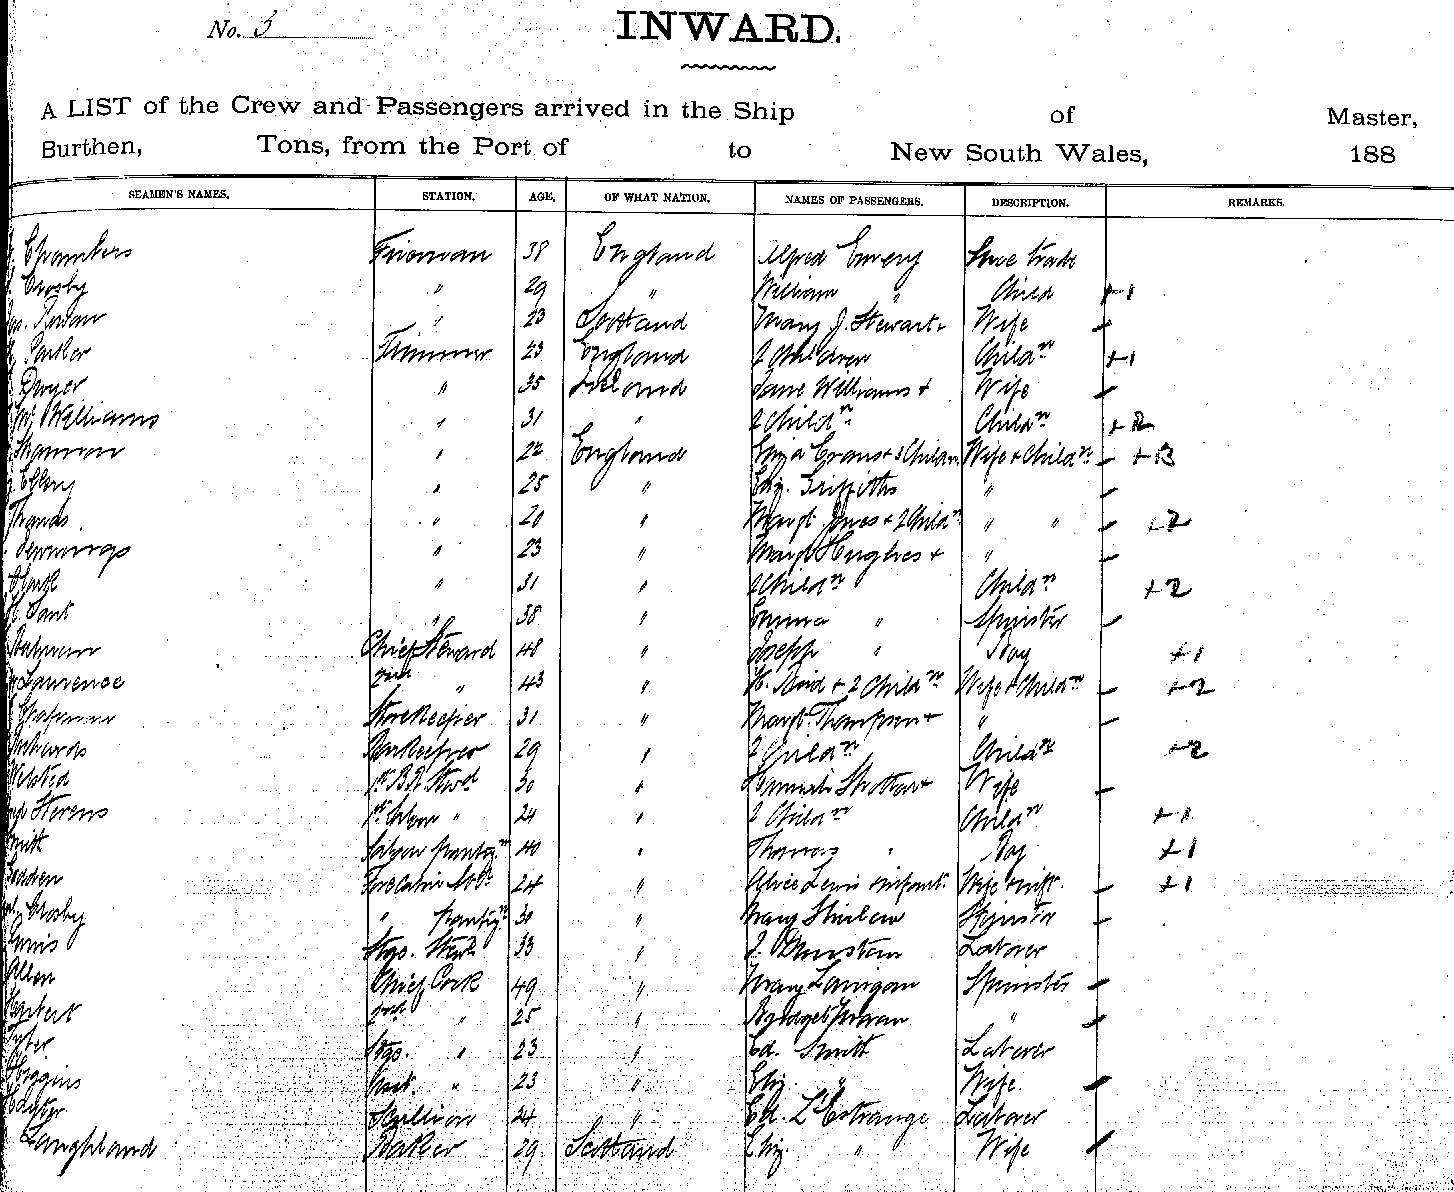 No. 5
INWARD.
A LIST of the Crew and Passengers arrived in the Ship of Master,
Burthen, Tons, from the Port of to New South Wales, 188
SEAMEN'S NAMES. STATION. AGE. OF WHAT NATION. NAMES OF PASSENGERS. DESCRIPTION. REMARKS.
Chambers Fireman 38 England Alfred Emery trade
Crosby " 29 " William " Child +1
" 23 Scotland Mary J. Stewart + Wife
Parker Trimmer 23 England 2 Children Childn +1
Dwyer " 35 Ireland Jane Williams + Wife
McWilliams " 31 " 2 Childn Childn +2
Shannon " 22 England Eliza Evans + 3 Childn Wife + Childn +3
Ellery " 25 " Eliz. Griffiths "
Thomas " 20 " Margt. Jones + 2 Childn " " +2
Jennings " 23 " Margt Hughes + "
" 31 " 2 Childn Childn +2
" 38 " Emma " Spinster
Chief Steward 48 " Joseph " Boy +1
Lawrence 2nd " 43 " Reid + 2 Childn Wife + Childn +2
Chapman Storekeeper 31 " Margt. Thompson + "
Richards Barkeeper 29 " 2 Childn Childn +2
30 " Hannah + Wife
Stevens " 24 " 2 Childn Childn +1
Smith Saloon pantryn 40 " Thomas " Boy +1
24 " Alice Lewis + infant. Wife + inft. +1
Crosby " pantryn 30 " Mary Spinster
33 " J. Dunstan Labourer
Allen Chief Cook 49 " Mary Lanigan Spinster
Herbert 2nd " 25 " Bridget Moran "
Stgs. " 23 " Ed. Smith Labourer
Higgins Asst. " 23 " Eliz. " Wife
Scullion 24 " Ed. L'Estrange Labourer
Langhland Baker 29 Scotland Eliz. " Wife